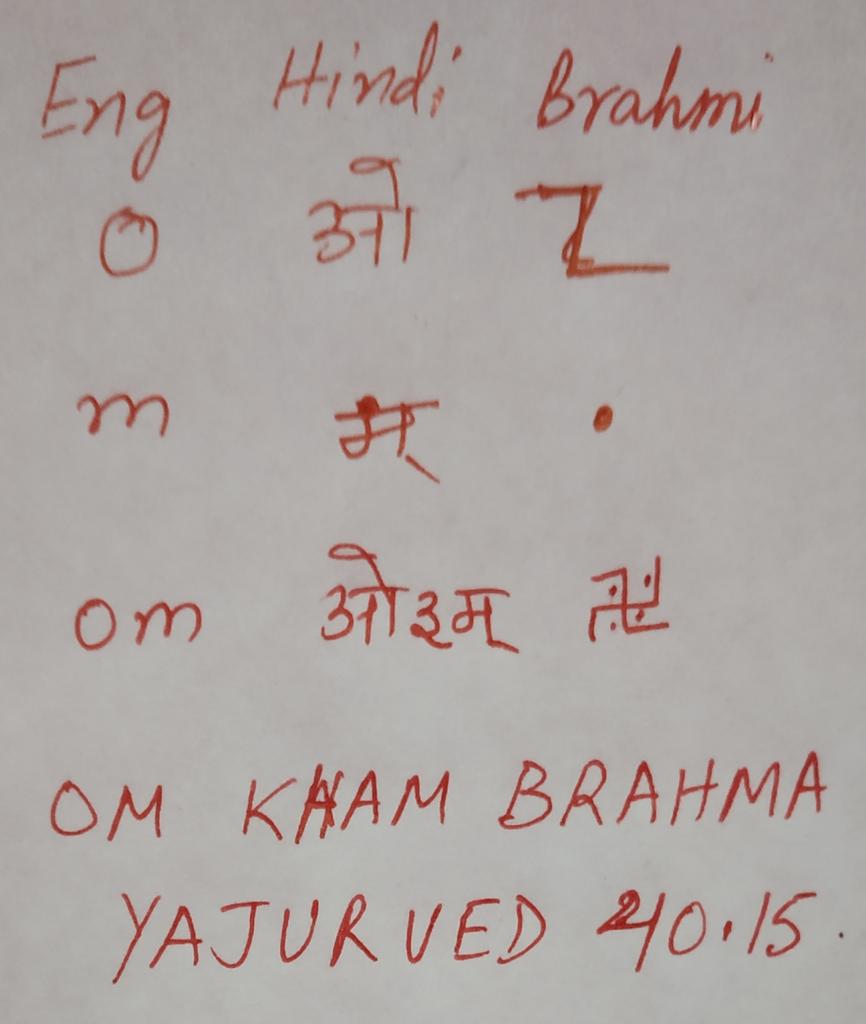 Eng Hindi Brahmi
O ओ 𑀑
m म् •
om ओ३म् 卐
OM KHAM BRAHMA
YAJURVED 40.15.